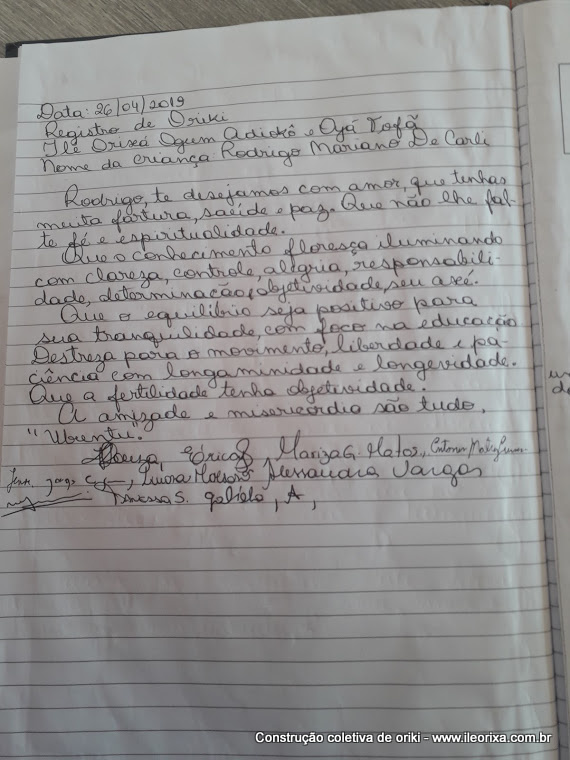 Data: 26/04/2019
Registro de Oriki
Ilê Orixá Ogum Adiokô e Oyá Tofã
Nome da criança Rodrigo Mariano De Carli
Rodrigo, te desejamos com amor, que tenhas
muita fartura, saúde e paz. Que não lhe fal-
te fé e espiritualidade.
Que o conhecimento floresça iluminando
com clareza, controle, alegria, responsabili-
dade, determinação, objetividade, seu axé.
Que o equilíbrio seja positivo para
sua tranquilidade, com foco na educação
Destreza para o movimento, liberdade e pa-
ciência com longaminidade e longevidade.
Que a fertilidade tenha objetividade.
A amizade e misericórdia são tudo.
"Ubuntu".
Mariza G. Matos,
Alessandra Vargas
Vanessa S. , A,
Construção coletiva de oriki - www.ileorixa.com.br